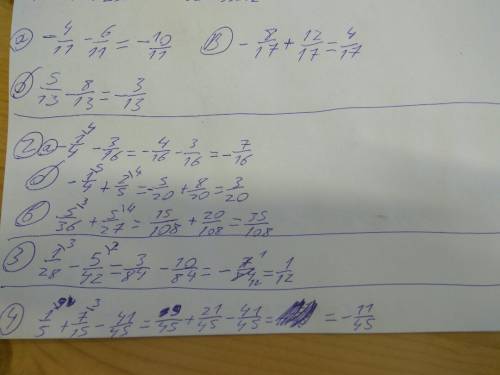 а) -4/11 - 6/11 = -10/11 в) -8/17 + 12/17 = 4/17
б) 5/13 - 8/13 = -3/13
2) а) -1/4 ^4 - 3/16 = -4/16 - 3/16 = -7/16
б) -1/4 ^5 + 2/5 ^4 = -5/20 + 8/20 = 3/20
в) 5/36 ^3 + 5/27 ^4 = 15/108 + 20/108 = 35/108
3) 1/28 ^3 - 5/42 ^2 = 3/84 - 10/84 = -7/84 ^1 12 = 1/12
4) 1/5 + 7/15 ^3 - 41/45 = 9/45 + 21/45 - 41/45 = = -11/45